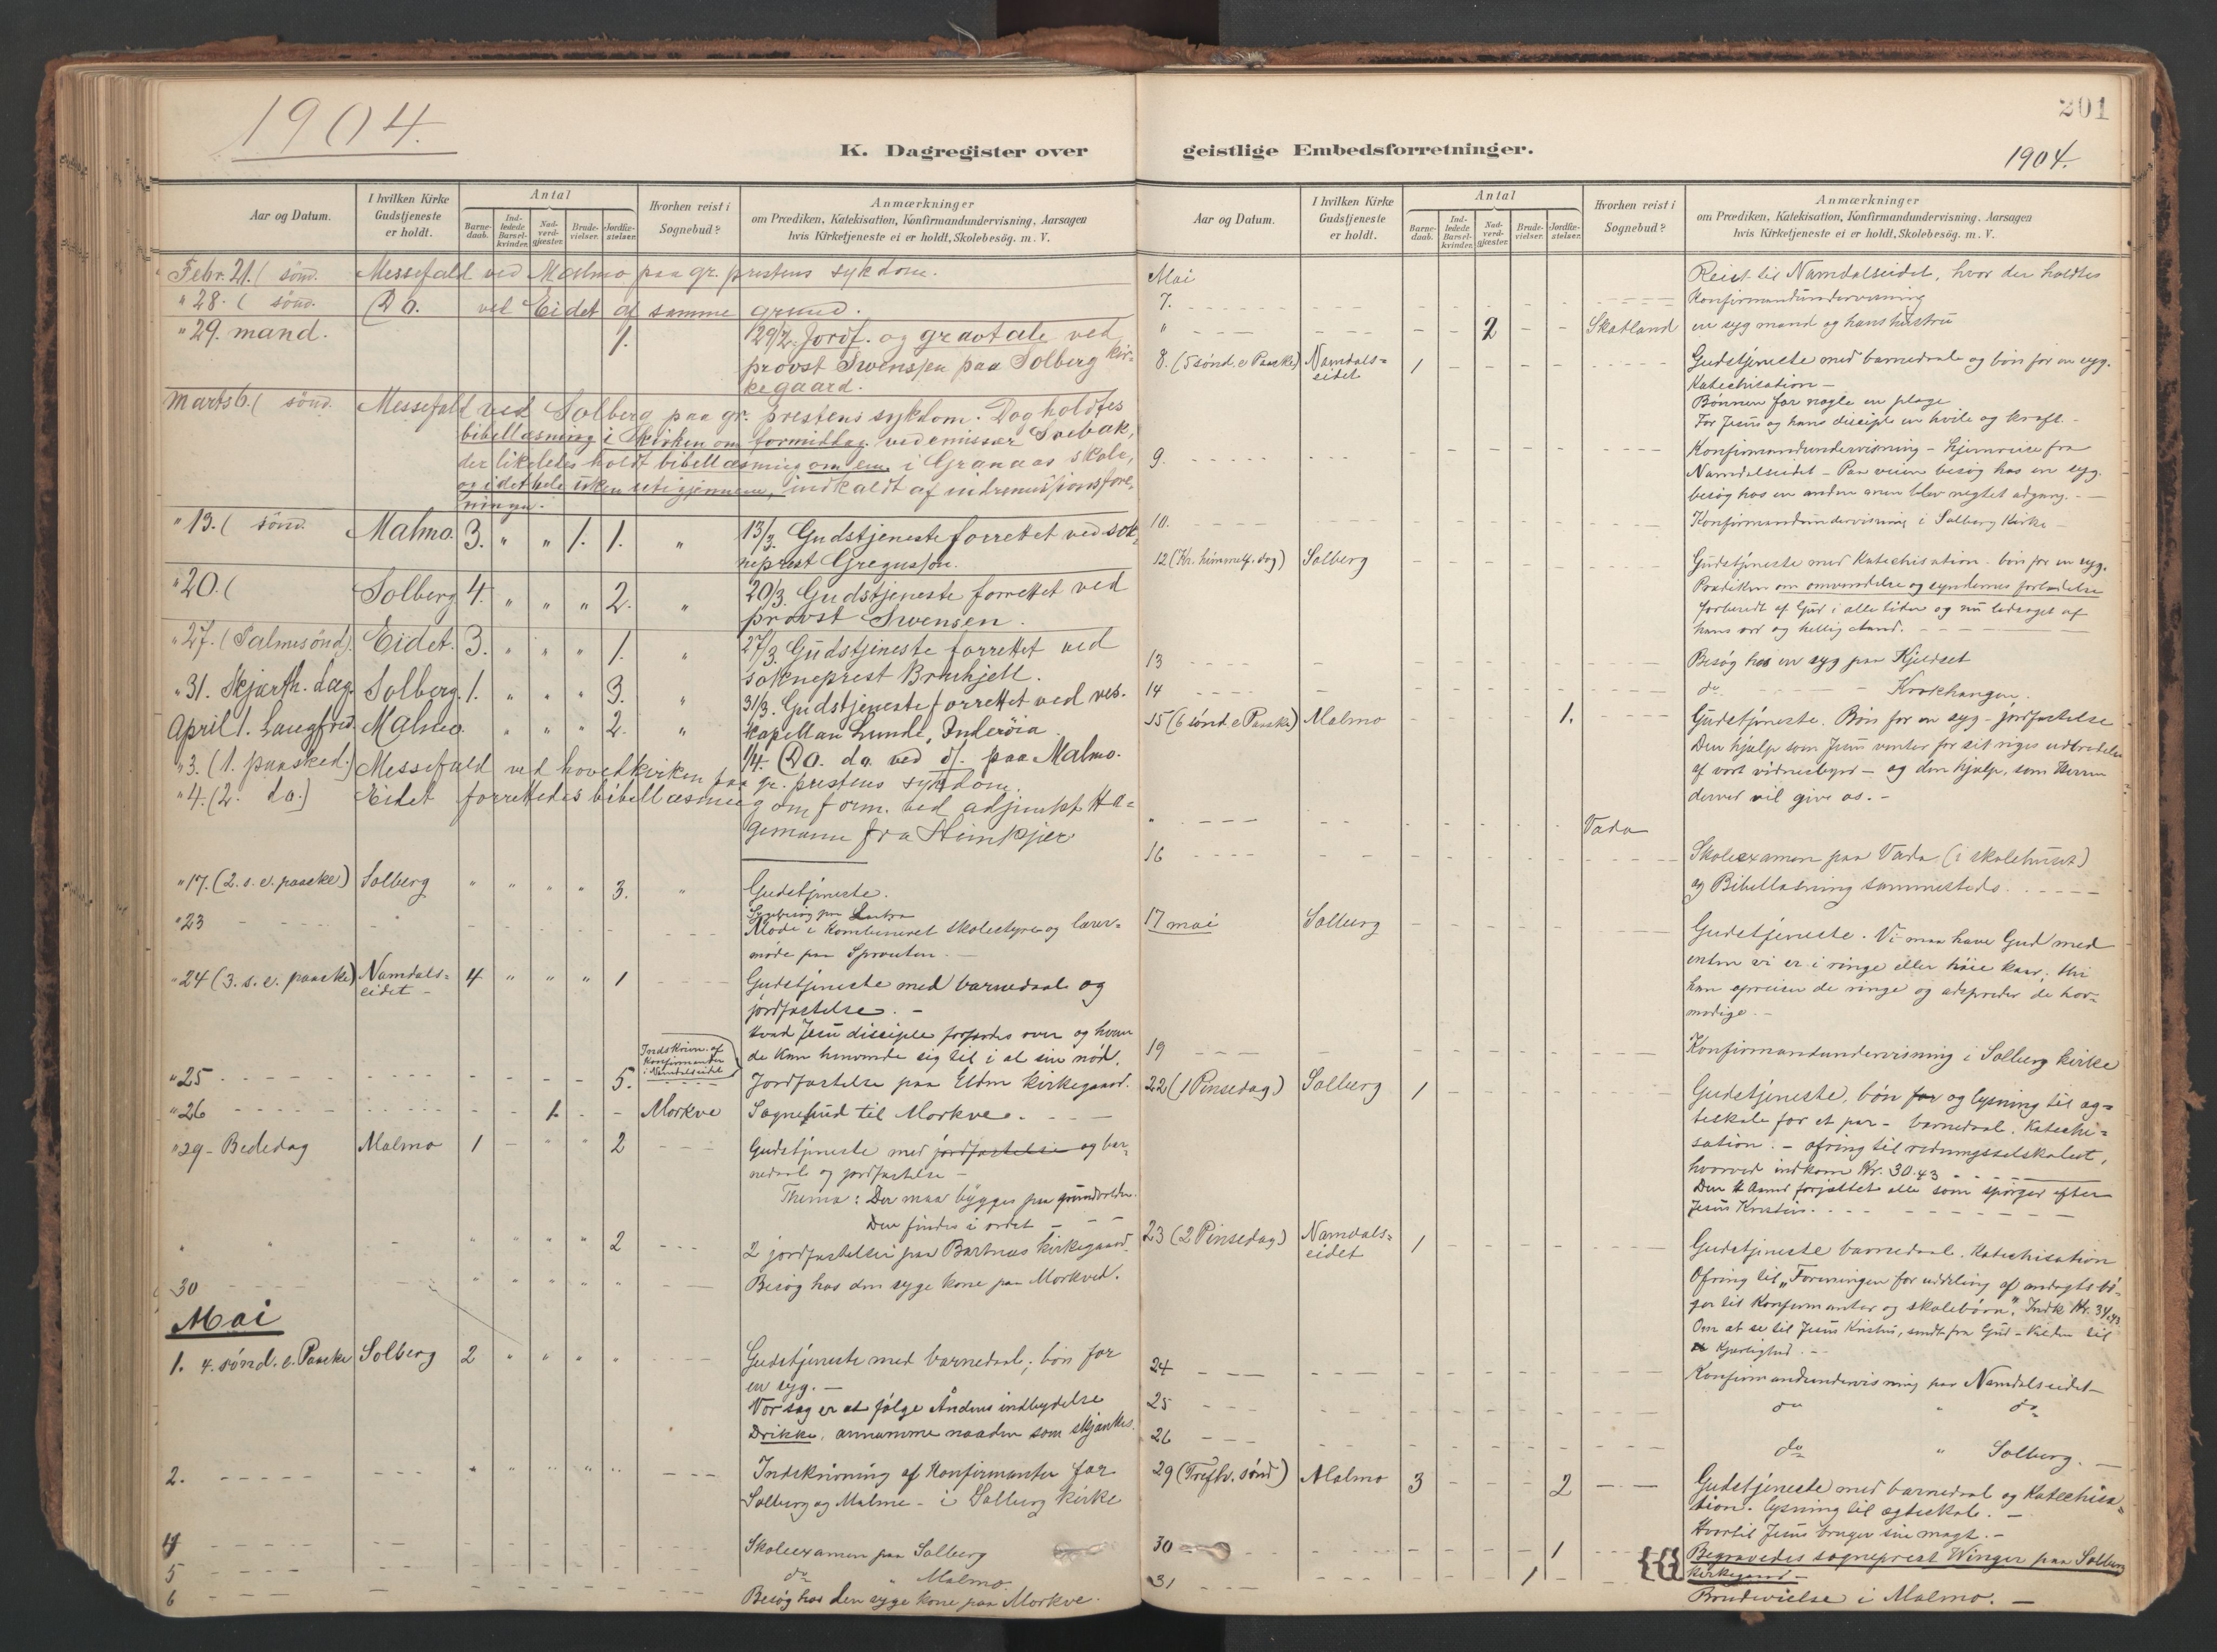 1904.
K. Dagregister over
Aar og Datum.
I hvilken Kirke Gudstjeneste er holdt.
Antal
Barne-daab.
Ind-ledede Barsel-kvinder.
Nad-verd-gjæster.
Brude-vielser.
Jordfæ-stelser.
Hvorhen reist i Sognebud?
Anmærkninger
om Prædiken, Katekisation, Konfirmandundervisning, Aarsagen
hvis Kirketjeneste ei er holdt, Skolebesög. m. V.
Febr. 21. ( sönd. Messefald ved Malmo paa gr. prestens sykdom.
" 28. ( sönd. Do. ved Eidet af samme grund.
" 29. mand. 1. 29/2. Jordf. og gravtale ved
provst Swensen paa Solberg kir-
kegaard.
Marts 6. ( sönd. Messefald ved Solberg paa gr. prestens sykdom. Dog holdtes
bibellæsning i kirken om formiddag ved emissær
der likeledes holdt bibellæsning om em. i Granaas skole,
indkaldt af indremissionsfore-
ningen.
" 13. ( sönd. Malmo. 3. " " 1. 1. " 13/3. Gudstjeneste forrettet ved sok-
neprest Gregussen.
" 20. ( Solberg 4. " " " 2. " 20/3. Gudstjeneste forrettet ved
provst Swensen.
" 27. (Palmesönd). Eidet. 3. " " " 1. " 27/3. Gudstjeneste forrettet ved
sokneprest Bruhjell.
" 31. Skjærth. dag. Solberg. 1. " " " 3. " 31/3. Gudstjeneste forrettet ved res.
April 1. Langfred. Malmo. " " " 2. " kapellan Lunde, Inderöia.
1/4. Do. do. ved ds. paa Malmo.
" 3. (1. paasked.) Messefald ved hovedkirken paa gr. prestens sykdom.
" 4. (2. do.) Eidet forrettedes bibellæsning om form. ved adjunkt Ha-
gemann fra Stenkjær
" 17. (2. s. e. paaske) Solberg " " " " 3. " Gudstjeneste.
" 23 - - - Sygebesög paa
Möde i kombineret skolestyre og lærer-
möde paa Sprouten. -
" 24 (3. s. e. paaske) Namdals-
eidet - 4 " " " 1 - - - Gudstjeneste med barnedaab og
jordfæstelse. -
Hvad Jesu disciple over og hvem
de kan henvende sig til i al sin nød.
Indskrivn. af
Konfirmanter
i Namdalseidet
" 25 - - - 5. Jordfæstelse paa Elden kirkegaard.
" 26 - - - 1. - - Morkve Sognebud til Morkve. - - -
" 29 - Bededag Malmo 1 - " " 2 - - - Gudstjeneste med jordfæstelse og bar-
nedaab og jordfæstelse -
Thema: Der maa bygges paa grundvolden.
Den findes i ordet - - -
" " - " " " " 2 - - - 2 jordfæstelser paa Bartnes kirkegaard.
30 - - - " " " " " Besög hos den syge kone paa Morkved.
Mai
1. 4. sönd. e. Paaske Solberg 2 " " " " - - - Gudstjeneste med barnedaab; bön for
en syg. -
Vor sag er at fölge Åndens indbydelse
Drikke, annamme naaden som skjænkes.
2. - - - Indskrivning af Konfirmanter for
Solberg og Malmo - i Solberg kirke
4 - - - Skoleexamen paa Solberg
5 - - - do " Malmo.
6 - - - Besög hos den syge kone paa Morkve.
201
geistlige Embedsforretninger.
1904.
Aar og Datum.
I hvilken Kirke Gudstjeneste er holdt.
Antal
Barne-daab.
Ind-ledede Barsel-kvinder.
Nad-verd-gjæster.
Brude-vielser.
Jordfæ-stelser.
Hvorhen reist i Sognebud?
Anmærkninger
om Prædiken, Katekisation, Konfirmandundervisning, Aarsagen
hvis Kirketjeneste ei er holdt, Skolebesög. m. V.
Mai Reist til Namdalseidet, hvor der holdtes
7. - - - Konfirmandundervisning
" - - - 2 - - Skatland en syg mand og hans hustru
8. (5 sönd. e Paaske) Namdals-
eidet 1 - - - - Gudstjeneste med barnedaab og bön for en syg.
Katechisation -
Bönnen for nogle en plage
For Jesus og hans disciple en hvile og kraft. -
9. - - - Konfirmandundervisning - Hjemreise fra
Namdalseidet - Paa veien besög hos en syg.
besög hos en anden men blev negtet adgang. - -
10. - - - Konfirmandundervisning i Solberg Kirke -
12 (Kr. himmelf. dag) Solberg - - - Gudstjeneste med Katechisation. bön for en syg.
Prædiken om omvendelse og syndernes forladelse
forberedt af Gud i alle tider og nu ledsaget af
hans ord og hellig aand. - - -
13 - - - Besög hos en syg paa Kjeldset
14 - - - do - - - Krokhaugen.
15 (6 sönd. e Paaske) Malmo - - - - 1. - - - Gudstjeneste. Bön for en syg - jordfæstelse
Den hjælp som Jesus venter for sit riges udbredelse
af vort vidnesbyrd - og den hjælp, som Herren
derved vil give os. -
" - - - Vada
16 - - - Skoleexamen paa Vada, (i skolehuset)
og Bibellæsning sammesteds. - - -
17 mai Solberg - - - Gudstjeneste. Vi maa have Gud med
enten vi er i ringe eller höie kaar; thi
han opreiser de ringe og adspreder de hov-
modige. -
19 - - - Konfirmandundervisning i Solberg kirke
22 (1 Pinsedag) Solberg 1 - - - - Gudstjeneste, bön for og lysning til æg-
teskab for et par - barnedaab. Katechi-
sation. - ofring til redningsselskabet,
hvorved indkom Kr. 30.43
Den H Aand forjættet alle som spörger efter
Jesus Kristus. - - -
23 (2 Pinsedag) Namdals-
eidet 1 - - - - Gudstjeneste barnedaab. Katechisation
Ofring til "Foreningen for uddeling af andagtsbö-
ger til Konfirmanter og skolebörn." Indk Kr. 34.43
Om at se til Jesus Kristus, sendt fra Gud - Kilden til
Kjærlighed. - -
24 - - - Konfirmandundervisning paa Namdalseidet -
25 - - - do " do
26 - - - do " Solberg. -
29 (Trefh. sönd) Malmo 3 - - - 2 - - Gudstjeneste med barnedaab og Katechisa-
tion. lysning til ægteskab. -
Hvortil Jesus bruger sin magt. -
30 - - - 1 Begravedes sogneprest Winger paa Solberg
kirkegaard -
31 - - - 1 - - Brudevielse i Malmo. -